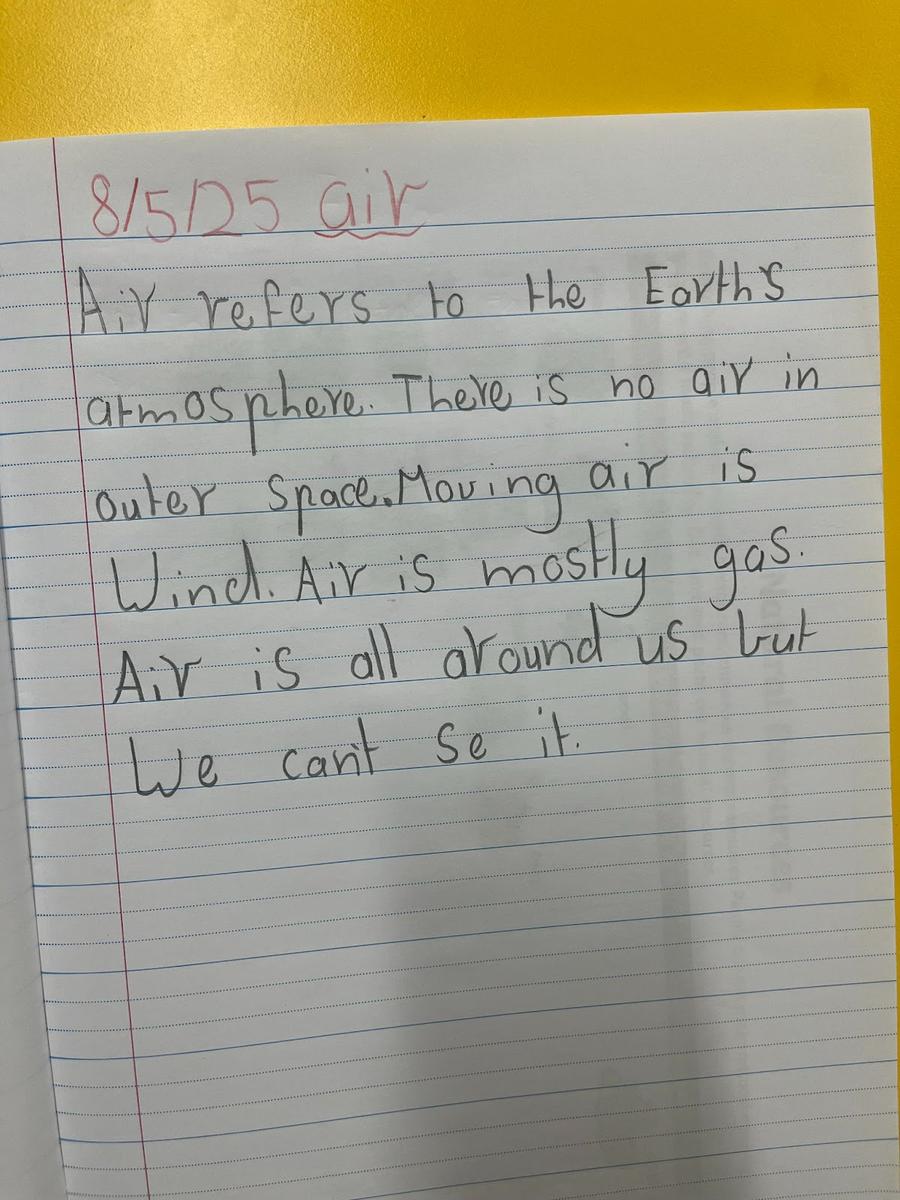 8/5/25 air
Air refers to the Earth's
atmosphere. There is no air in
outer space. Moving air is
Wind. Air is mostly gas.
Air is all around us but
We can't se it.